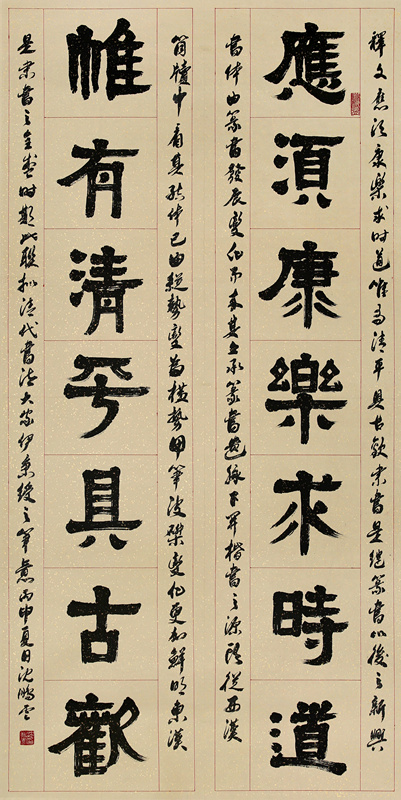 應須康樂求時道
帷有清平具古歡
釋文應須康樂求時道唯有清平具古歡隸書是繼篆書以後之新興
書體由篆書發展變化而來其上承篆書遺脈下開楷書之源頭從西漢
簡牘中看其結體已由縱勢變爲橫勢用筆波磔變化更加鮮明東漢
是隸書之全盛時期此聯擬清代書法大家伊秉綬之筆意丙申夏日沈鵬云